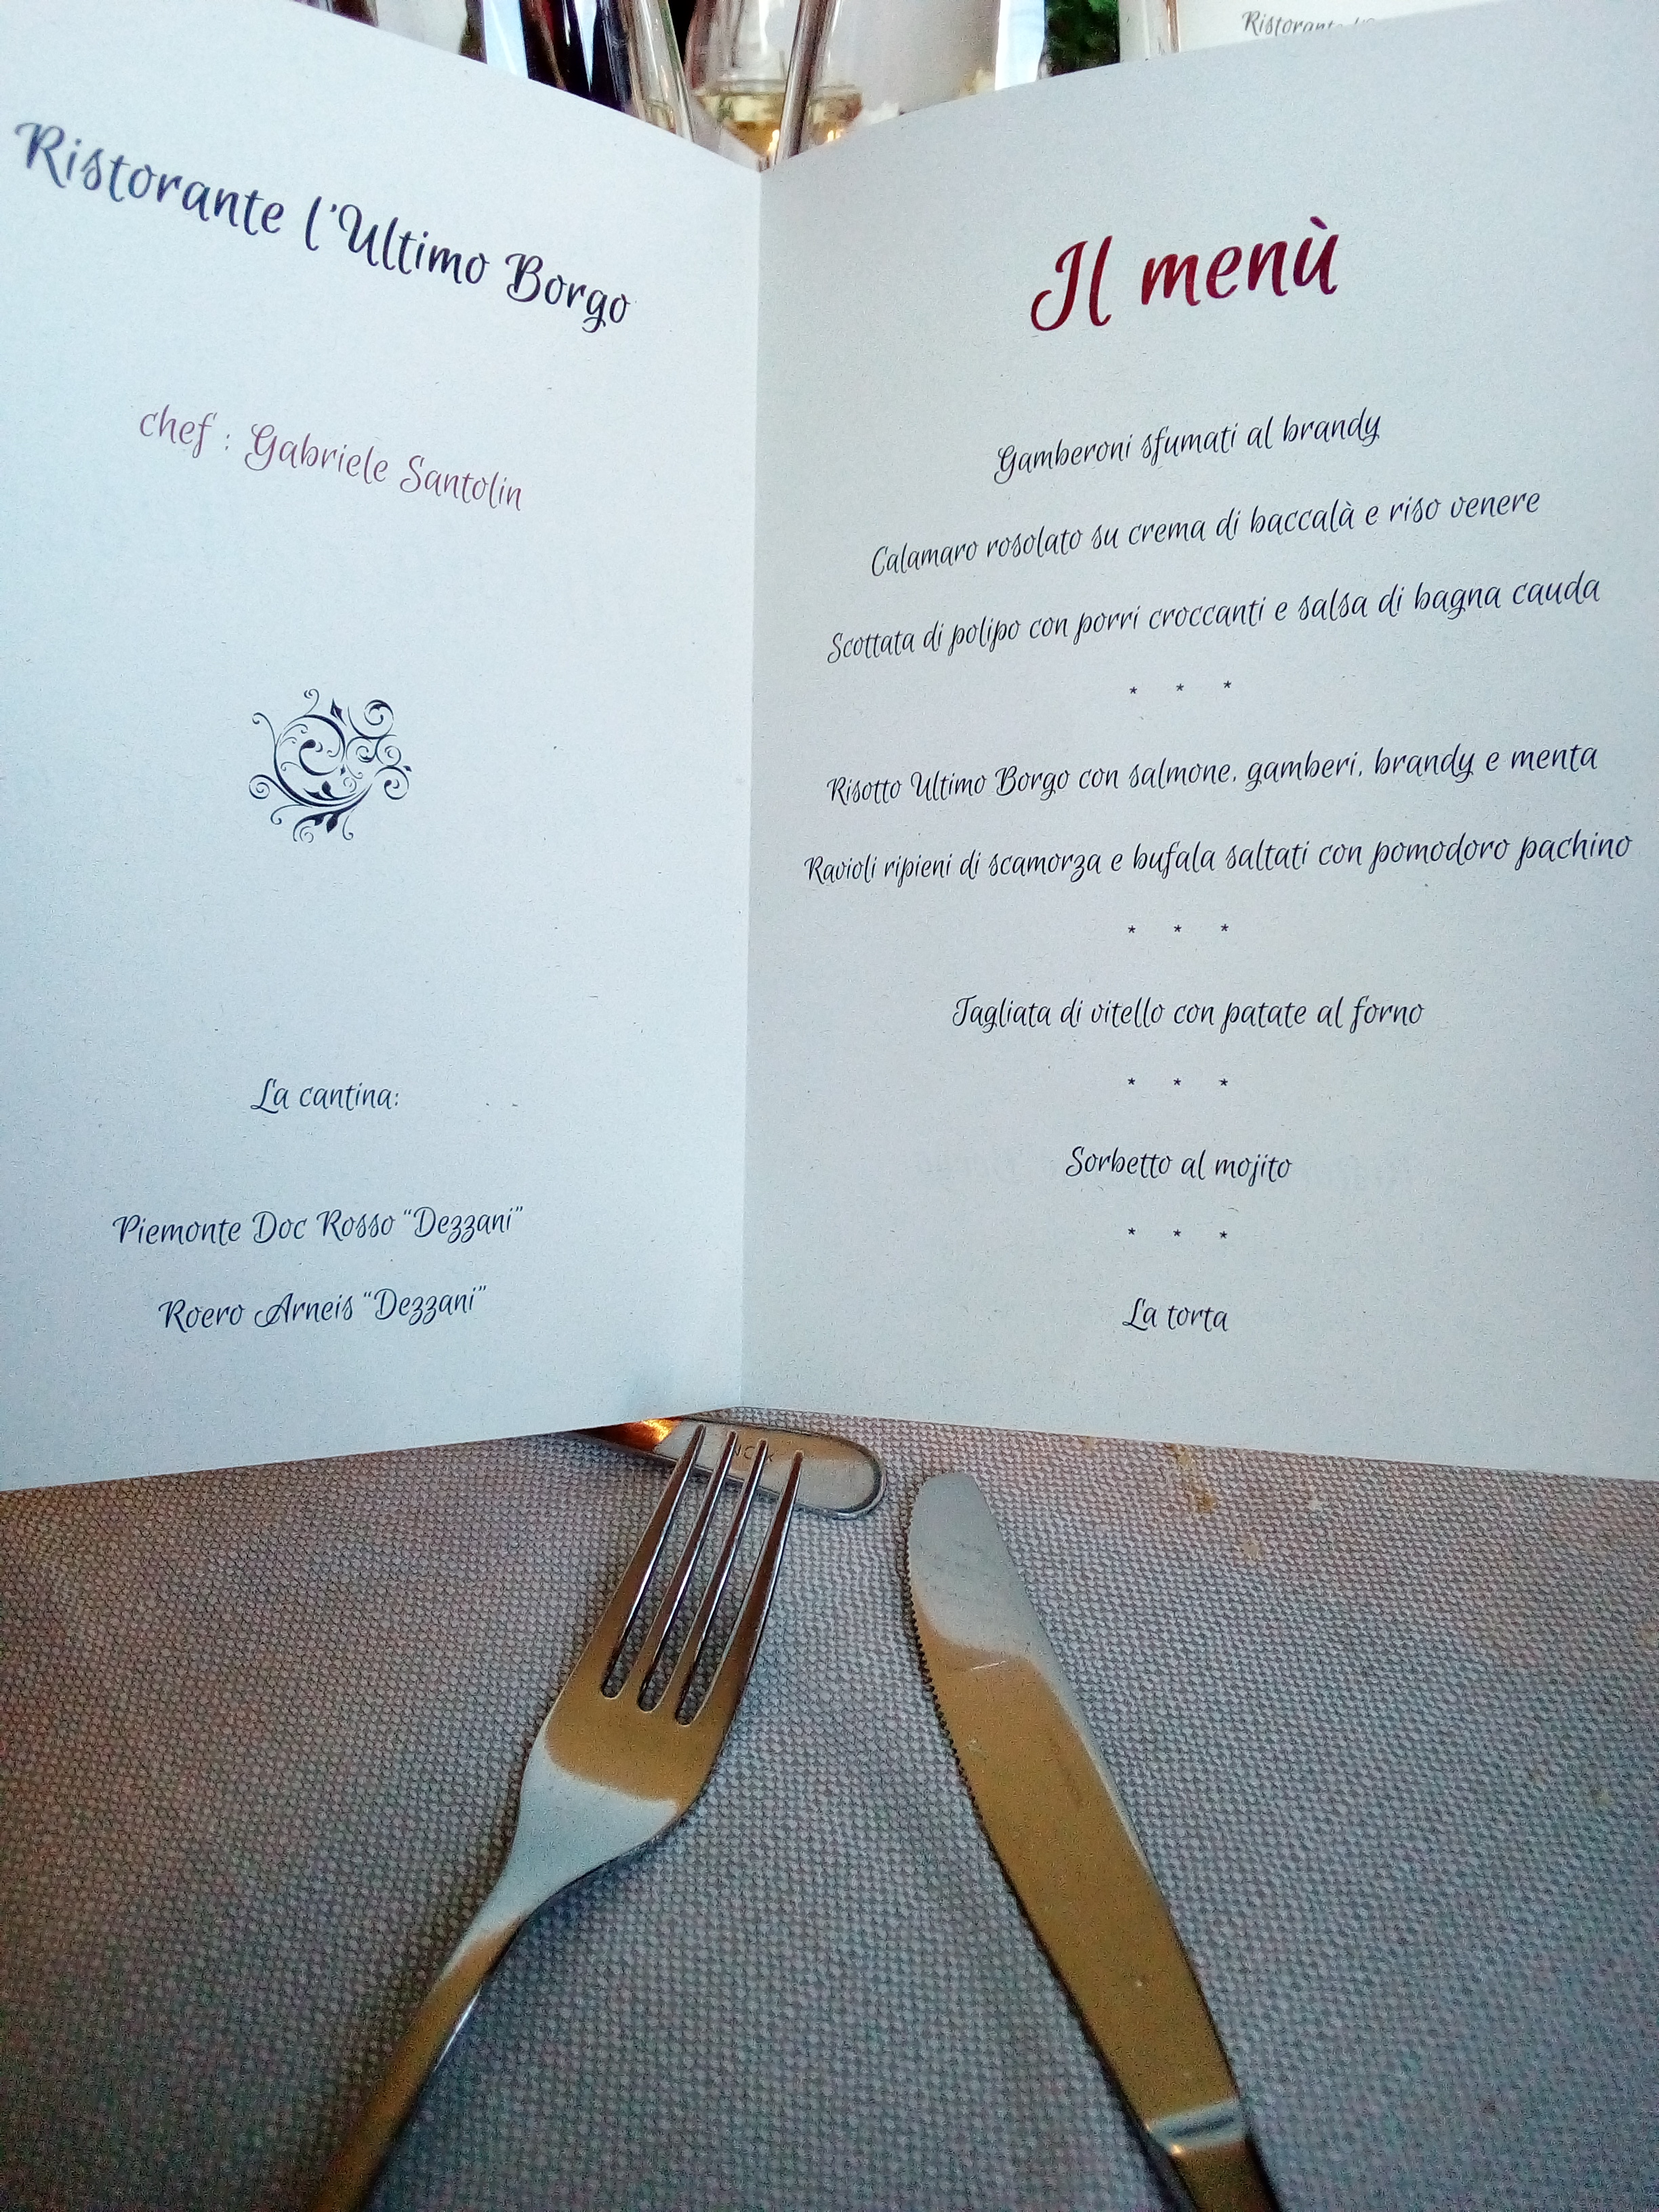 Ristorante l'Ultimo Borgo
chef : Gabriele Santolin
La cantina:
Piemonte Doc Rosso “Dezzani”
Roero Arneis “Dezzani”
Ristorante
Il menù
Gamberoni sfumati al brandy
Calamaro rosolato su crema di baccalà e riso venere
Scottata di polipo con porri croccanti e salsa di bagna cauda
* * *
Risotto Ultimo Borgo con salmone, gamberi, brandy e menta
Ravioli ripieni di scamorza e bufala saltati con pomodoro pachino
* * *
Tagliata di vitello con patate al forno
* * *
Sorbetto al mojito
* * *
La torta